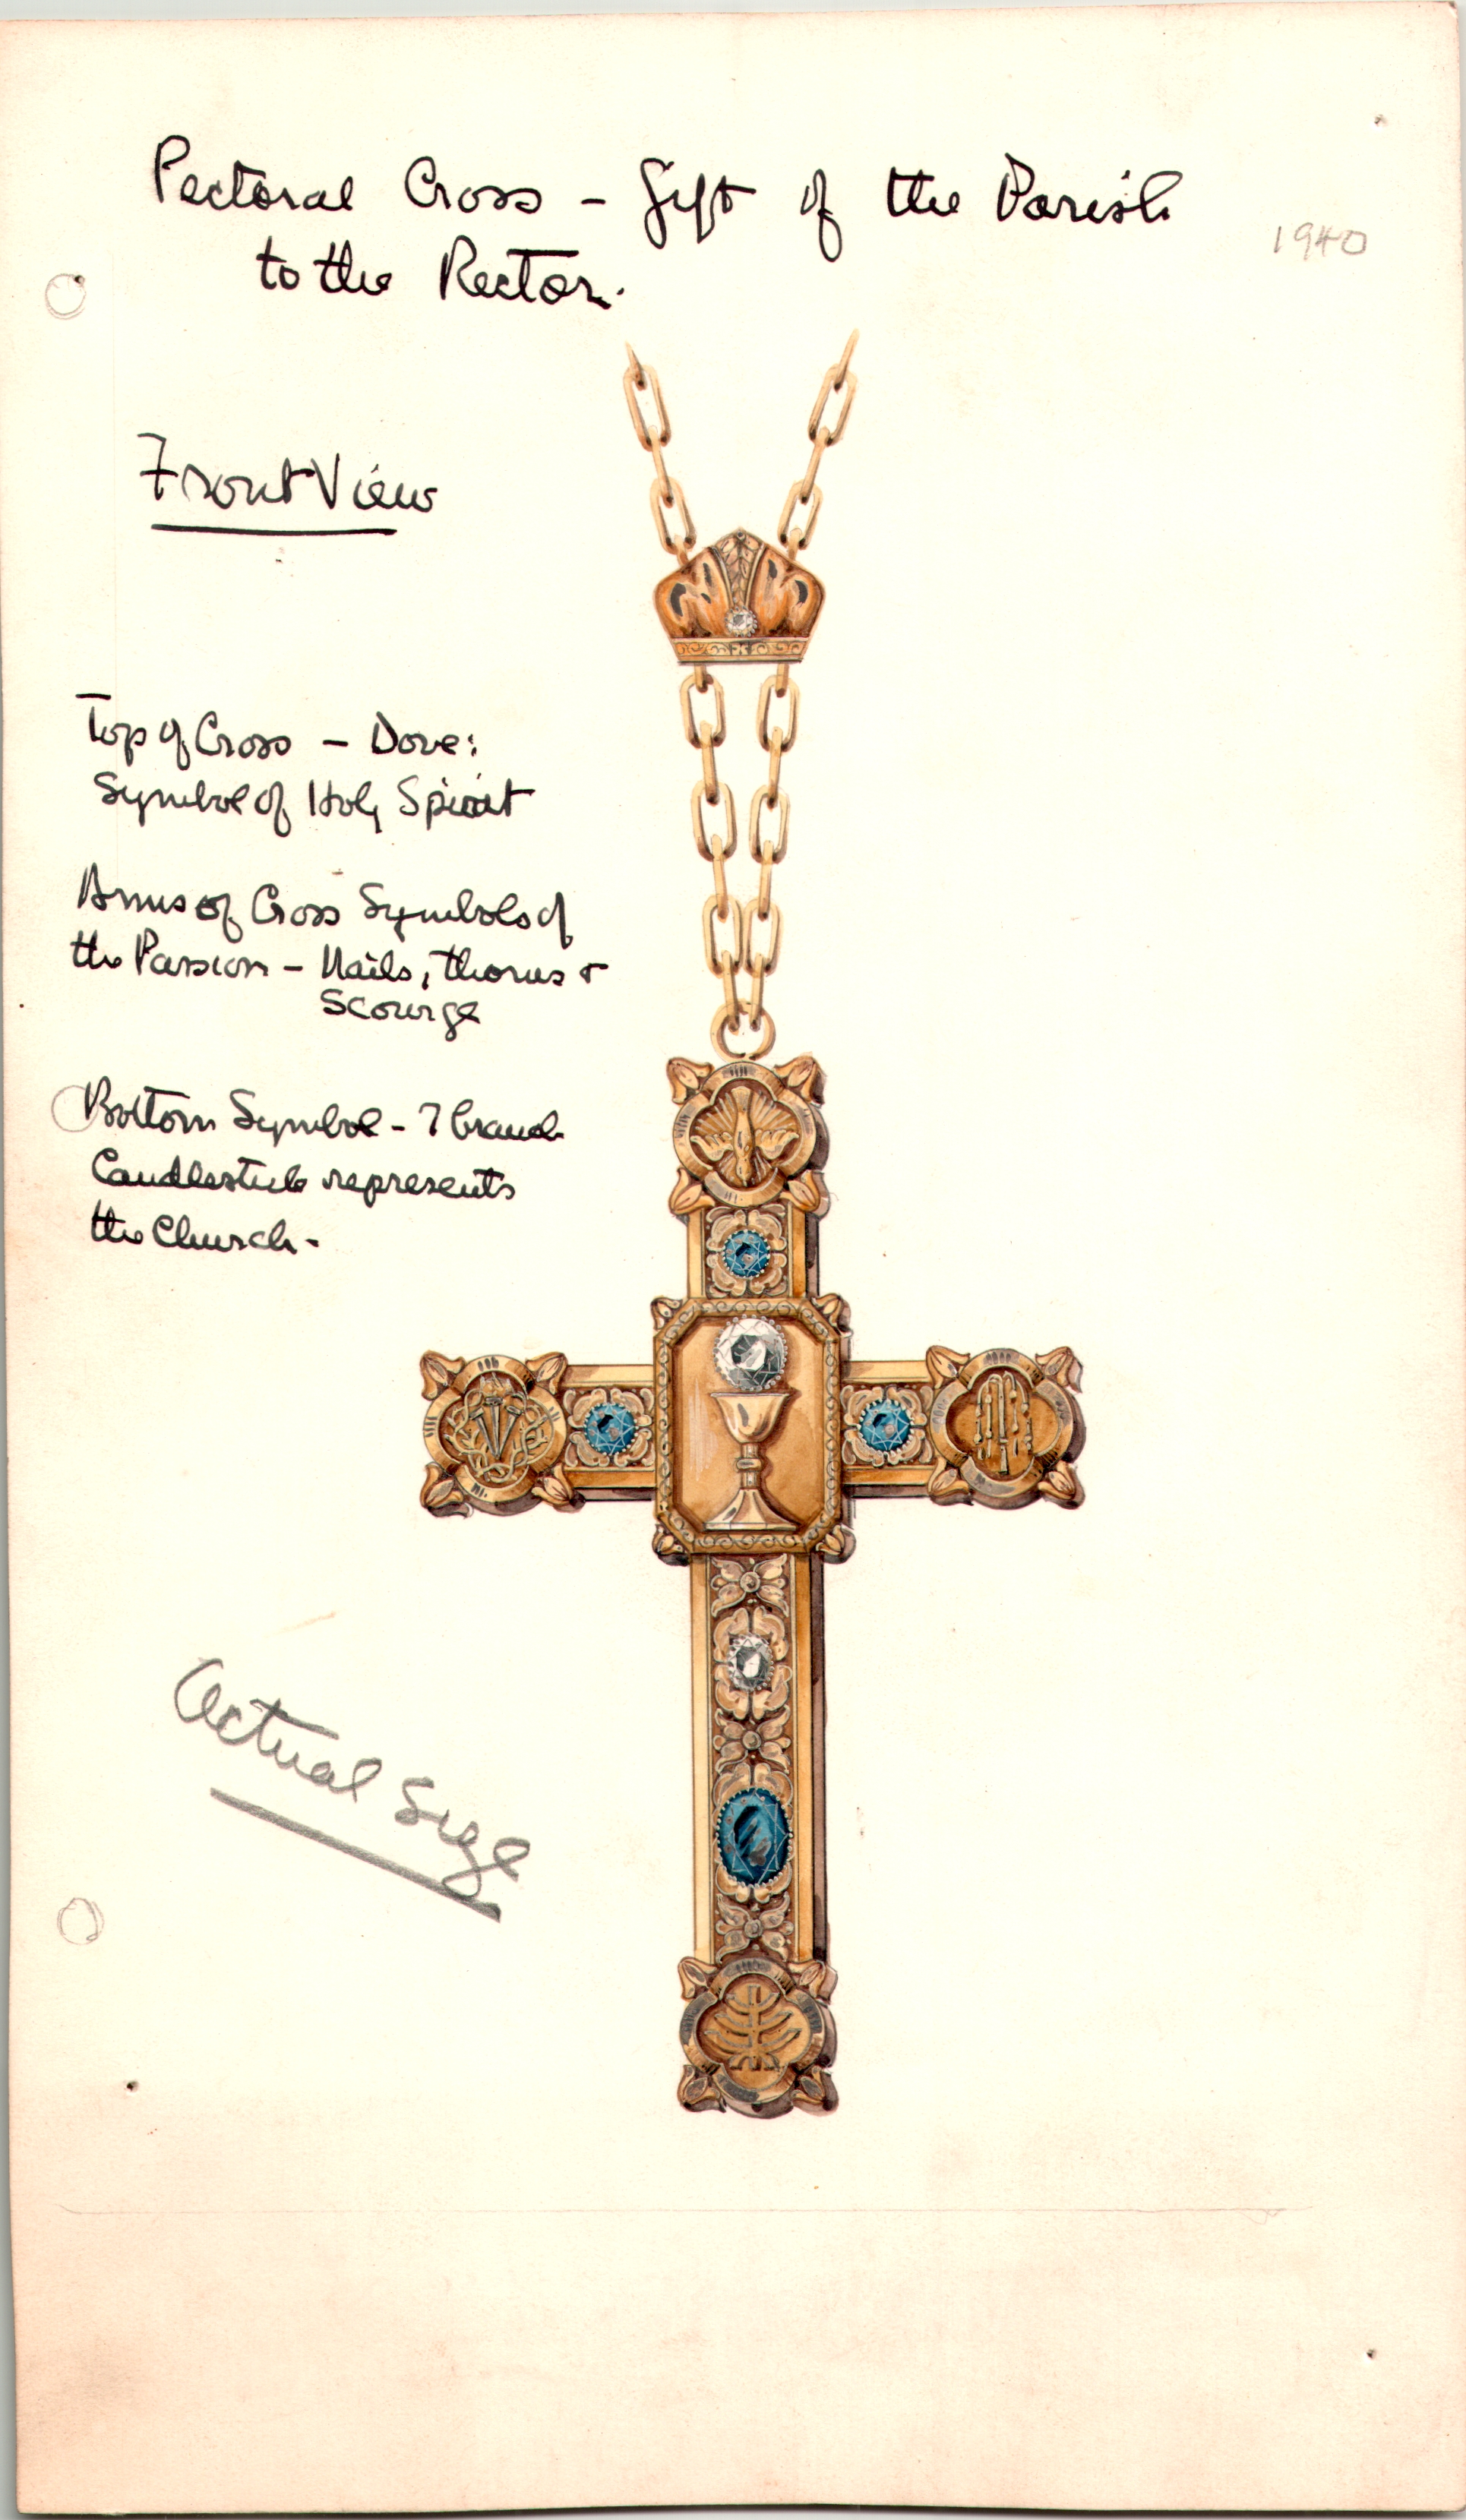 Pectoral Cross - Gift of the Parish
to the Rector.
1940
Front View
Top of Cross - Dove:
Symbol of Holy Spirit
Arms of Cross Symbols of
the Passion - Nails, thorns +
Scourge
Bottom Symbol - 7 branch
Candlestick represents
the Church -
Actual Size